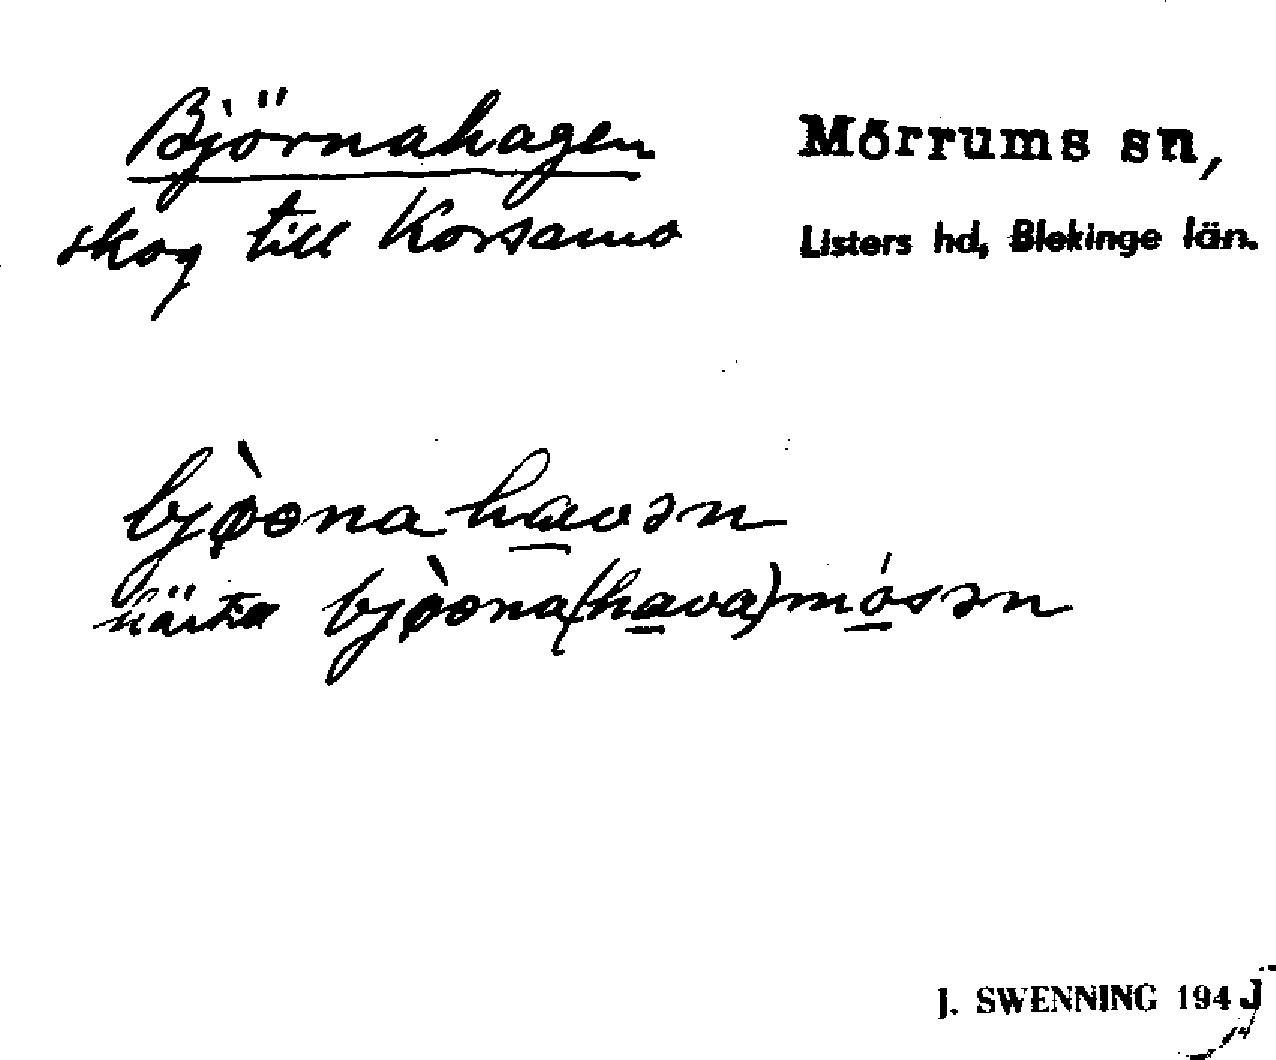 Björnahagen
skog till Korsamo
Mörrums sn,
Listers hd, Blekinge län.
bjø̀ɵna havən
härtill bjø̀ɵna(hava)mósən
J. SWENNING 194